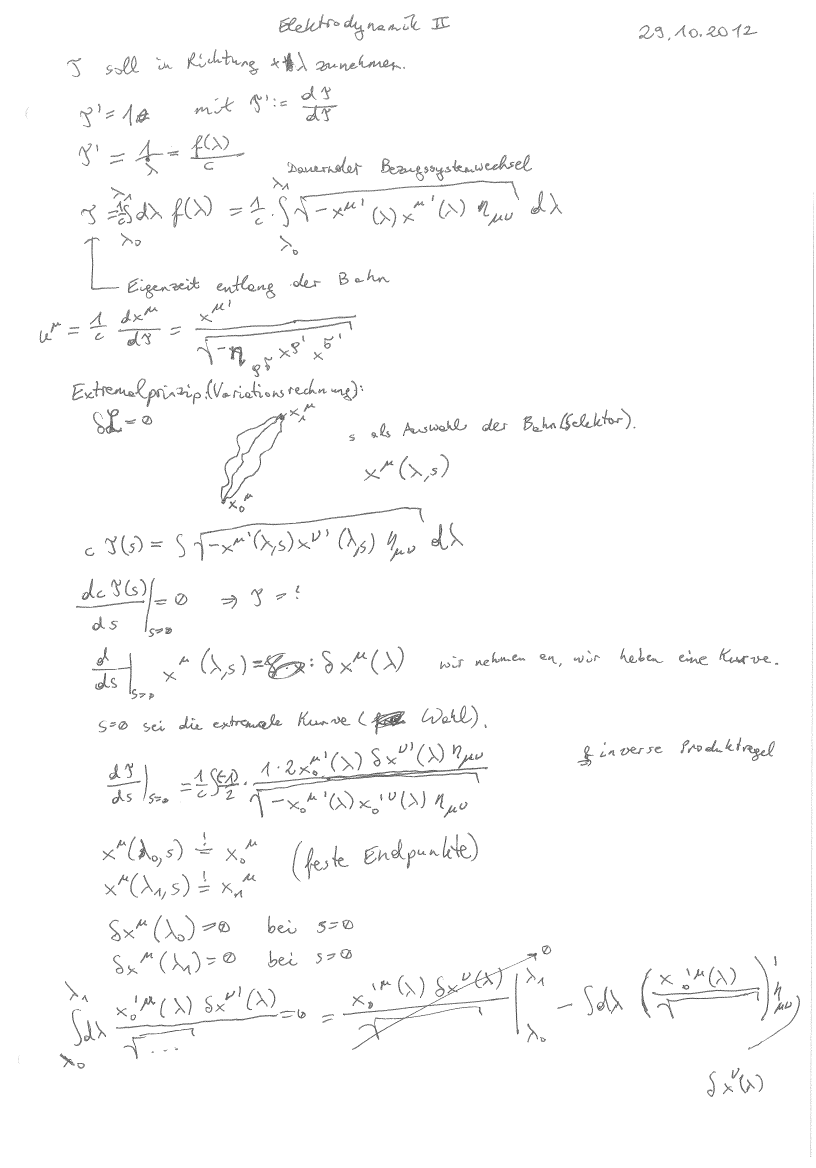 Elektrodynamik II
29.10.2012
T soll in Richtung +λ zunehmen.
T' = 1 mit T' := dT/dT
T' = 1/λ = f(λ)/c
Dauernder Bezugssystemwechsel
T = 1/c ∫_{λ_0}^{λ_1} dλ f(λ) = 1/c · ∫_{λ_0}^{λ_1} √(-x^{μ'}(λ) x^{μ'}(λ) η_{μν}) dλ
Eigenzeit entlang der Bahn
u^μ = 1/c dx^μ/dT = x^{μ'} / √(-η_{ρσ} x^{ρ'} x^{σ'})
Extremalprinzip (Variationsrechnung):
δL = 0
x_1^μ
s als Auswahl der Bahn (Selektor).
x^μ(λ,s)
x_0^μ
c T(s) = ∫ √(-x^{μ'}(λ,s) x^{ν'}(λ,s) η_{μν}) dλ
dc T(s)/ds |_{s=0} = 0 ⇒ T = !
d/ds |_{s=0} x^μ(λ,s) =: δx^μ(λ) wir nehmen an, wir haben eine Kurve.
s=0 sei die extremale Kurve (Wahl).
inverse Produktregel
dT/ds |_{s=0} = 1/c ∫ (-1)/2 · 1·2 x_0^{μ'}(λ) δx^{ν'}(λ) η_{μν} / √(-x_0^{μ'}(λ) x_0'^ν(λ) η_{μν})
x^μ(λ_0,s) ≟ x_0^μ (feste Endpunkte)
x^μ(λ_1,s) ≟ x_1^μ
δx^μ(λ_0) = 0 bei s=0
δx^μ(λ_1) = 0 bei s=0
∫_{λ_0}^{λ_1} dλ x_0'^μ(λ) δx^{ν'}(λ) / √... = 0 = x_0'^μ(λ) δx^ν(λ) / √ |_{λ_0}^{λ_1} → 0 - ∫dλ (x_0'^μ(λ) / √)' η_{μν}
δx^ν(λ)